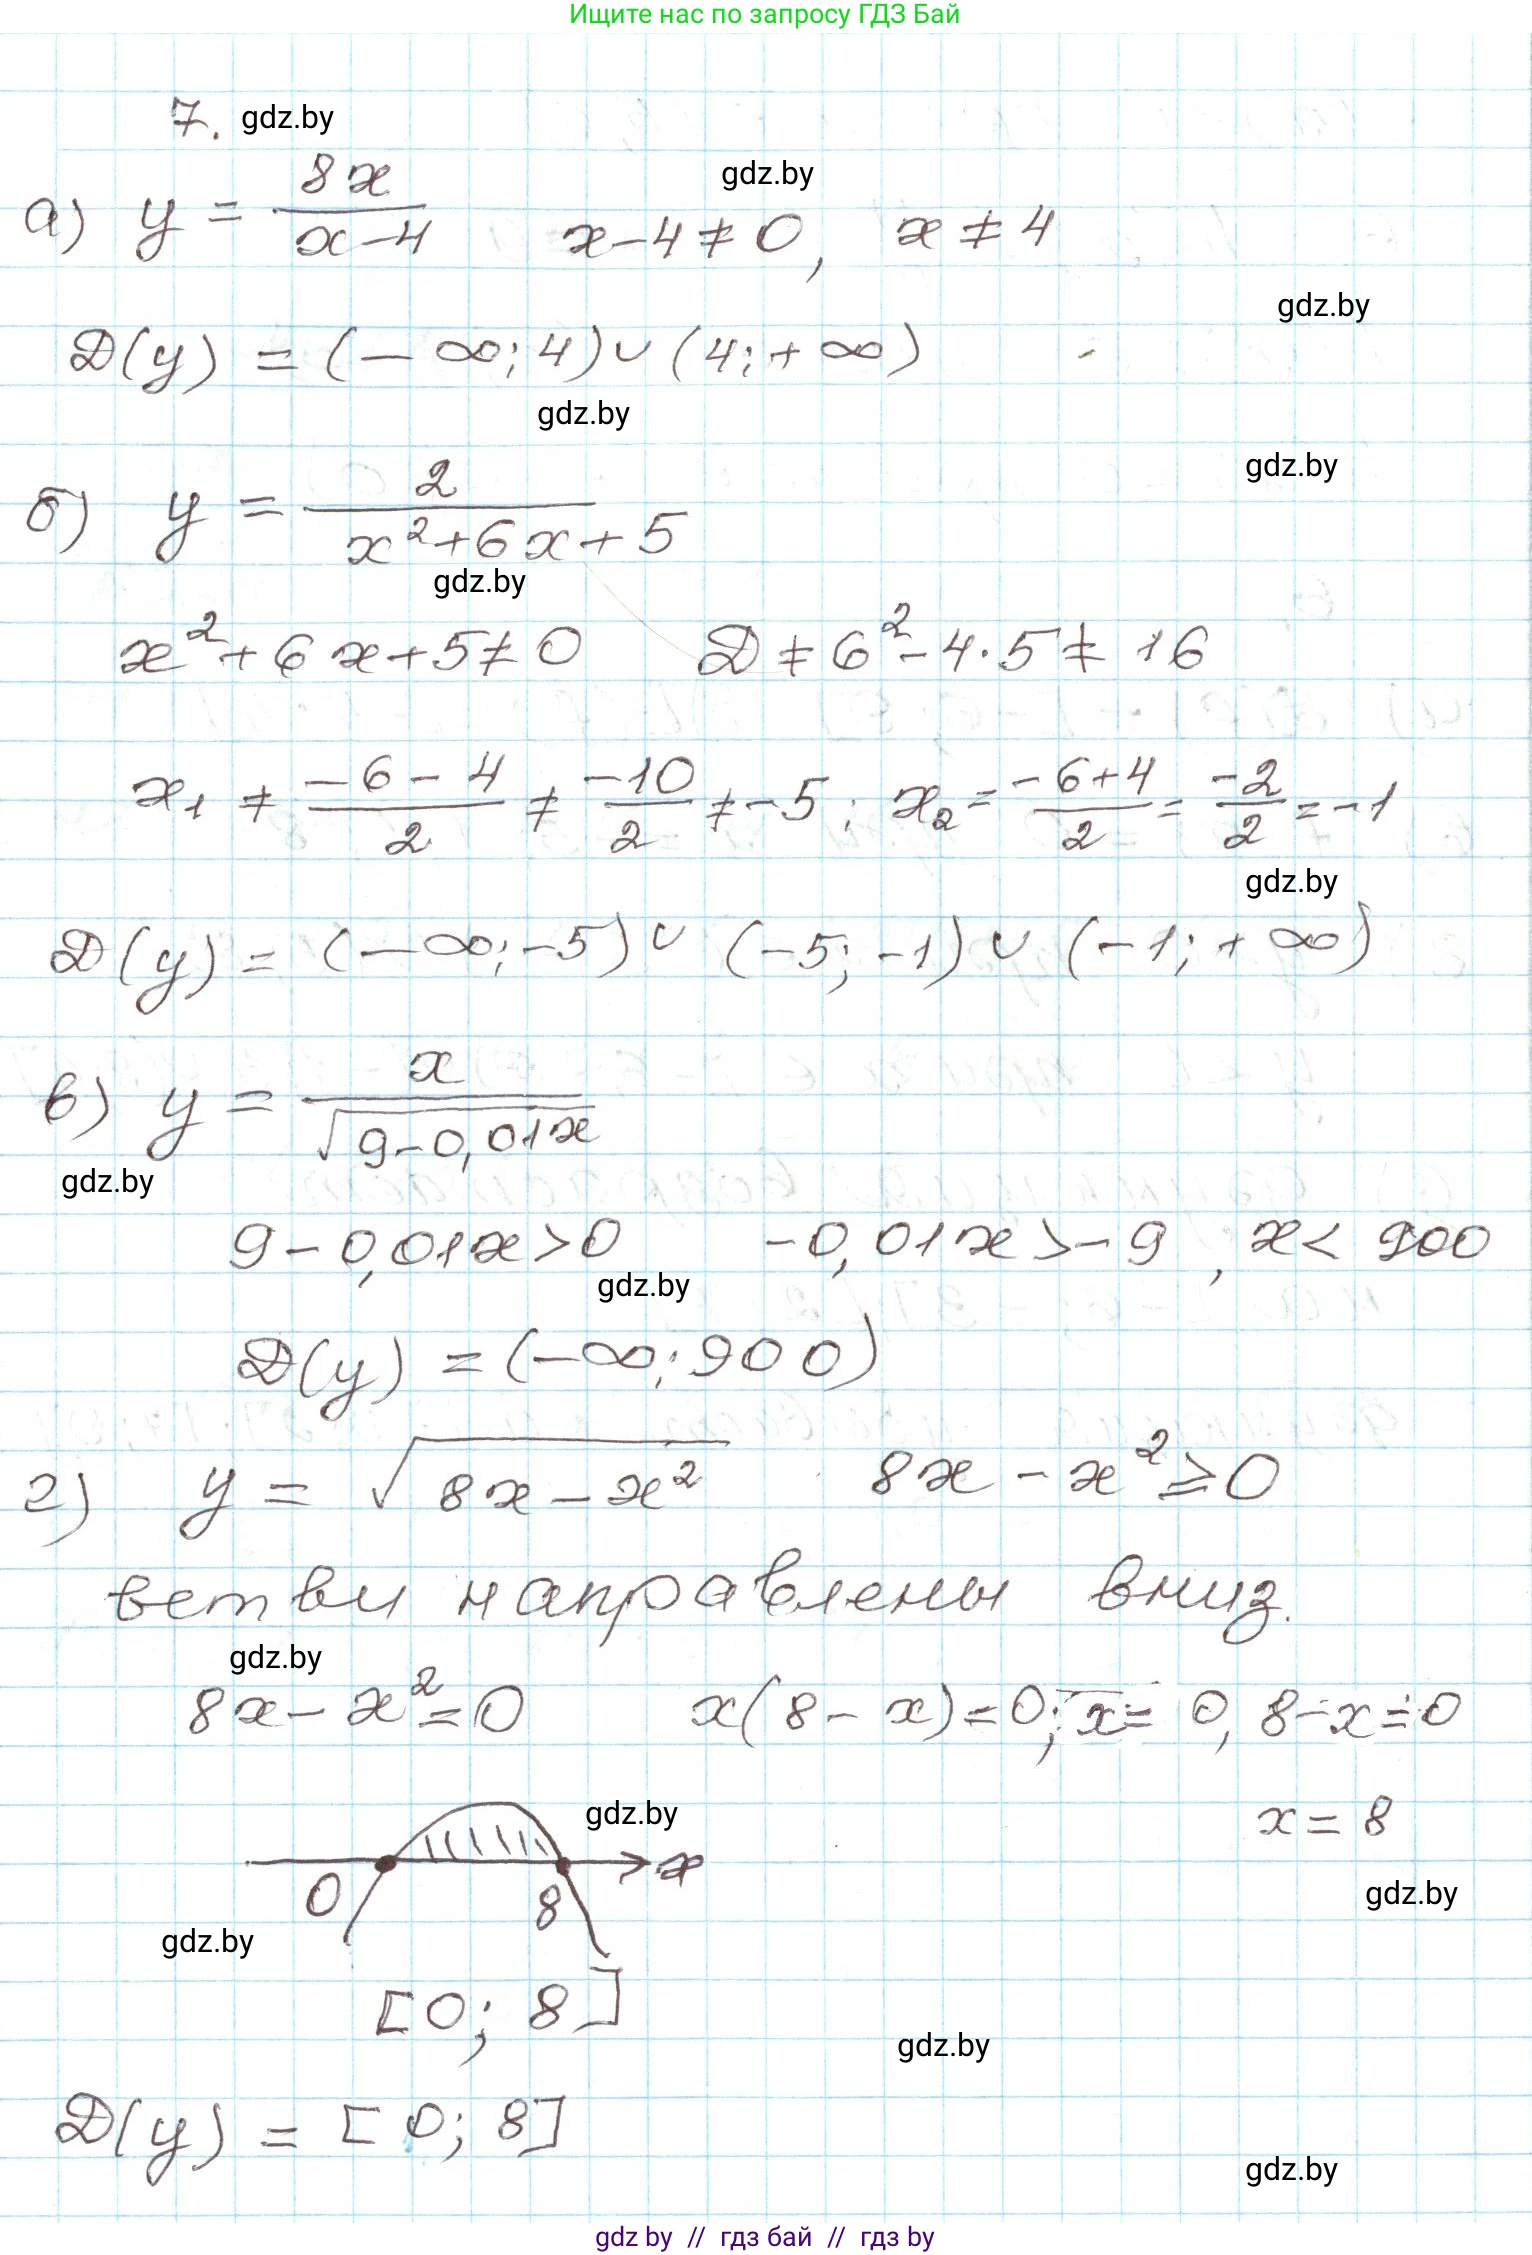 Ищите нас по запросу ГДЗ Бай
7. gdz.by
gdz.by
а) y = 8x / (x-4)   x-4≠0, x≠4
gdz.by
D(y) = (-∞; 4) ∪ (4; +∞)
gdz.by
gdz.by
б) y = 2 / (x²+6x+5)
gdz.by
x²+6x+5≠0   D ≠ 6²-4·5 ≠ 16
x₁ ≠ (-6-4)/2 ≠ -10/2 ≠ -5; x₂ = (-6+4)/2 = -2/2 = -1
gdz.by
D(y) = (-∞; -5) ∪ (-5; -1) ∪ (-1; +∞)
в) y = x / √(9-0,01x)
gdz.by
9-0,01x>0   -0,01x>-9, x< 900
gdz.by
D(y) = (-∞; 900)
г) y = √(8x-x²)   8x-x²≥0
ветви направлены вниз.
gdz.by
8x-x²=0   x(8-x)=0; x=0, 8-x=0
gdz.by
x=8
x
0 8
gdz.by
gdz.by
[0; 8]
gdz.by
D(y) = [0; 8]
gdz.by
gdz by // гдз бай // гдз by